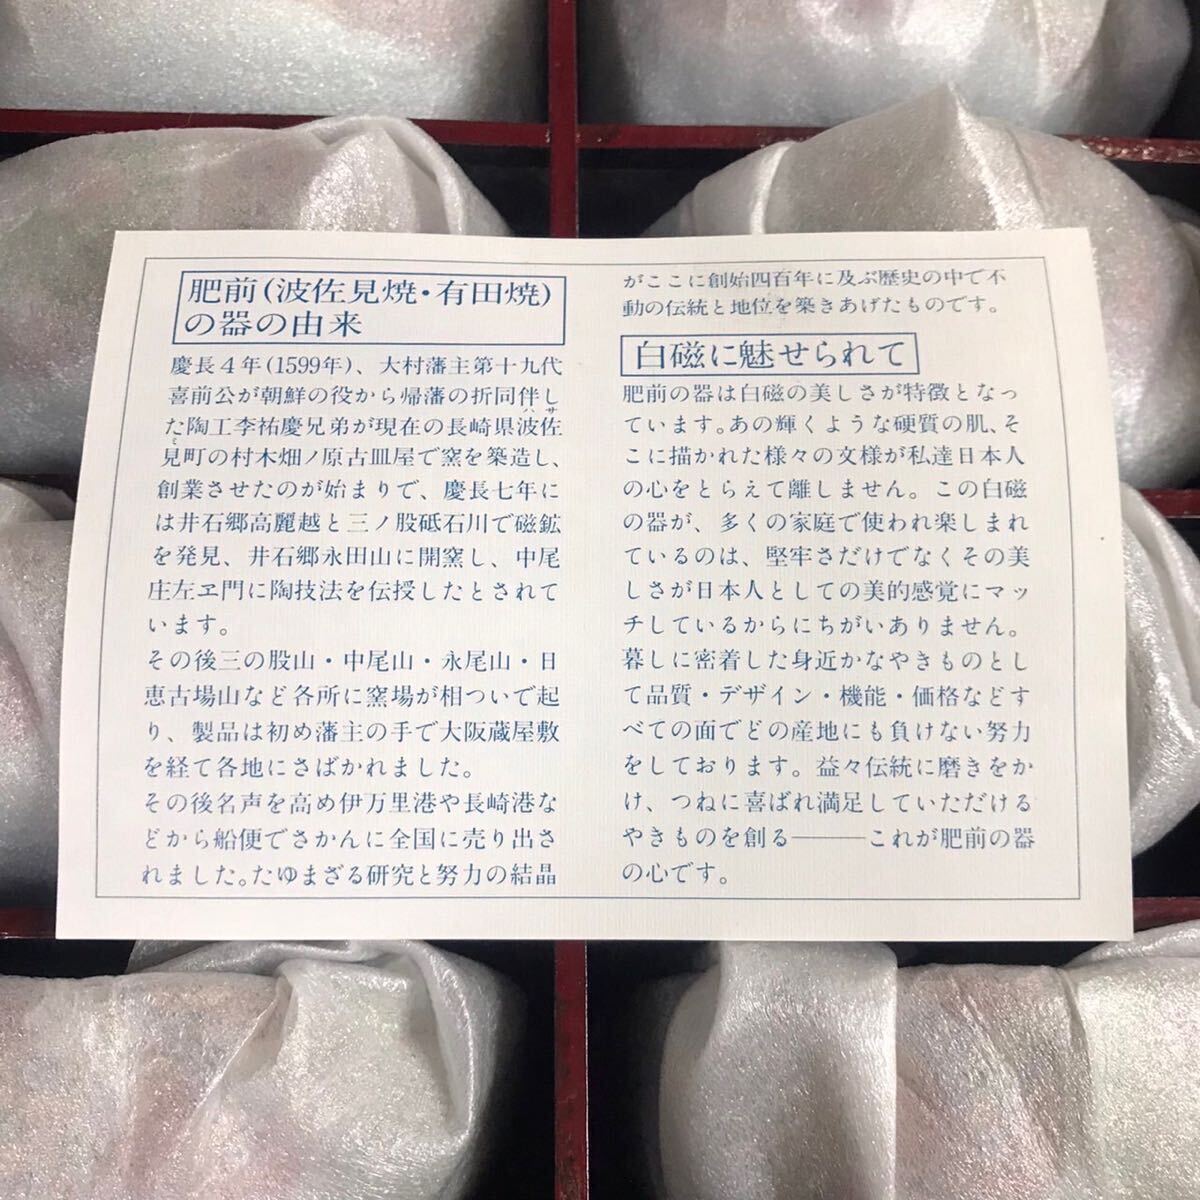 肥前(波佐見焼・有田焼)
の器の由来
慶長4年(1599年)、大村藩主第十九代
喜前公が朝鮮の役から帰藩の折同伴し
た陶工李祐慶兄弟が現在の長崎県波佐
見町の村木畑ノ原古皿屋で窯を築造し、
創業させたのが始まりで、慶長七年に
は井石郷高麗越と三ノ股砥石川で磁鉱
を発見、井石郷永田山に開窯し、中尾
庄左ヱ門に陶技法を伝授したとされて
います。
その後三の股山・中尾山・永尾山・日
恵古場山など各所に窯場が相ついで起
り、製品は初め藩主の手で大阪蔵屋敷
を経て各地にさばかれました。
その後名声を高め伊万里港や長崎港な
どから船便でさかんに全国に売り出さ
れました。たゆまざる研究と努力の結晶
がここに創始四百年に及ぶ歴史の中で不
動の伝統と地位を築きあげたものです。
白磁に魅せられて
肥前の器は白磁の美しさが特徴となっ
ています。あの輝くような硬質の肌、そ
こに描かれた様々の文様が私達日本人
の心をとらえて離しません。この白磁
の器が、多くの家庭で使われ楽しまれ
ているのは、堅牢さだけでなくその美
しさが日本人としての美的感覚にマッ
チしているからにちがいありません。
暮しに密着した身近かなやきものとし
て品質・デザイン・機能・価格などす
べての面でどの産地にも負けない努力
をしております。益々伝統に磨きをか
け、つねに喜ばれ満足していただける
やきものを創る―――これが肥前の器
の心です。